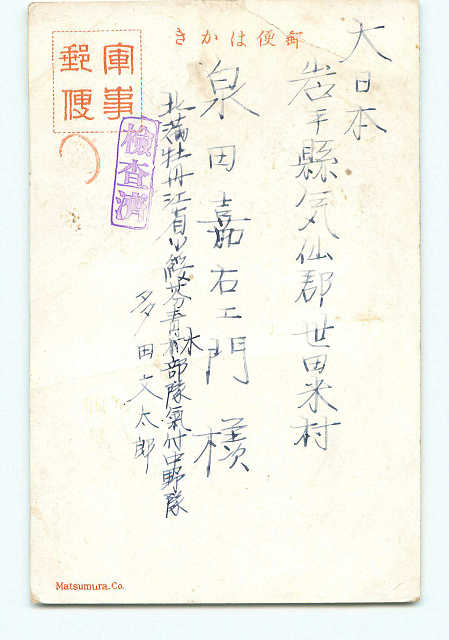 きかは便郵
軍事
郵便
検査済
大日本
岩手縣気仙郡世田米村
泉田嘉右エ門 様
北満牡丹江省 綏芬 青木部隊氣付中野隊
多田文太郎
Matsumura.Co.